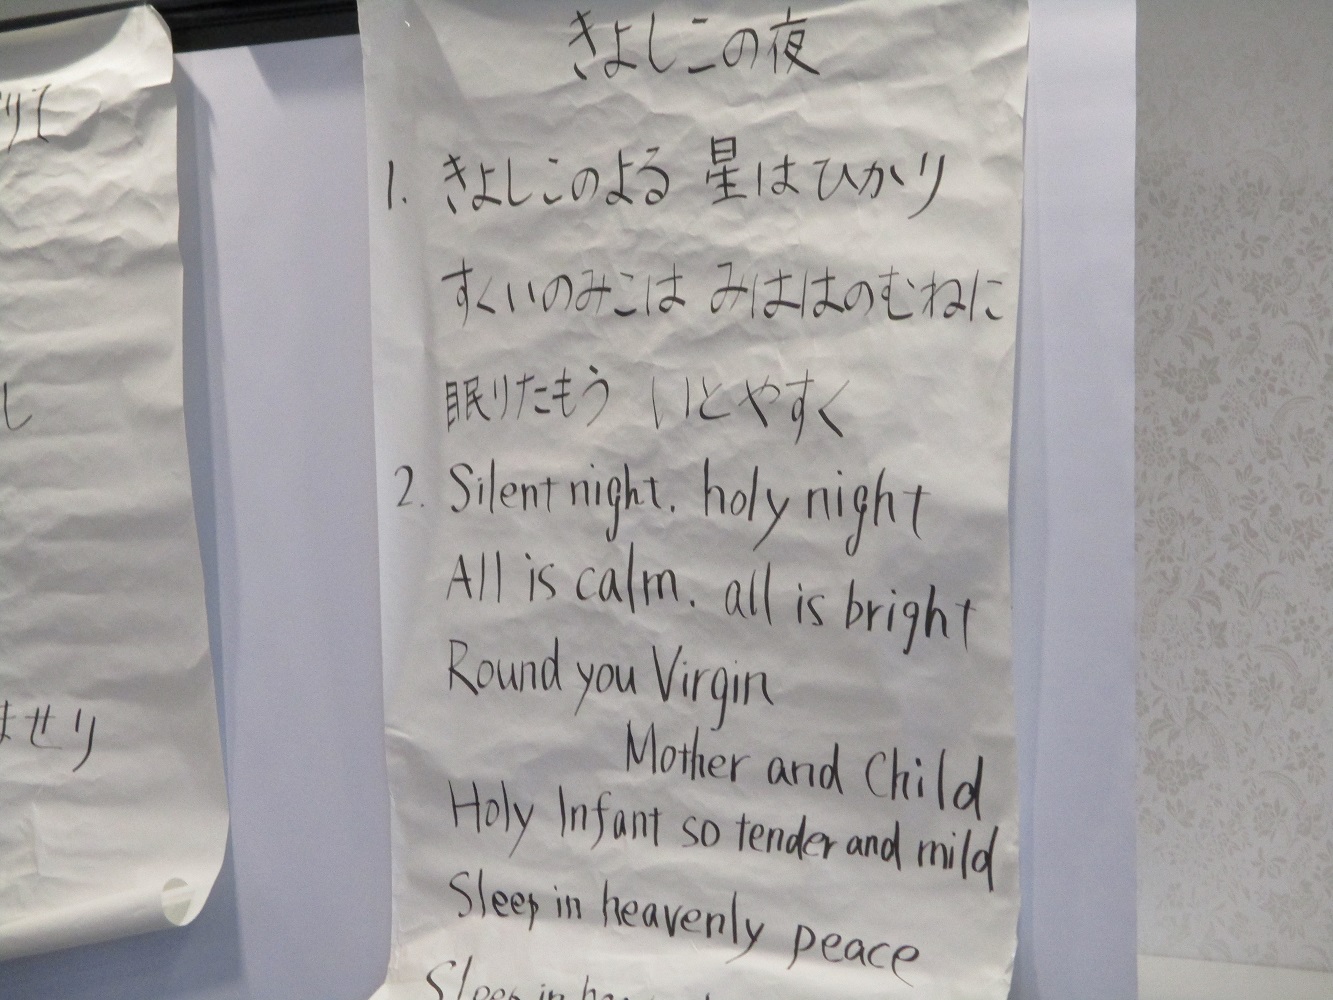 きよしこの夜
1. きよしこのよる 星はひかり
すくいのみこは みははのむねに
眠りたもう いとやすく
2. Silent night. holy night
All is calm. all is bright
Round you Virgin
Mother and Child
Holy Infant so tender and mild
Sleep in heavenly peace
Sleep in
りて
し
ませり